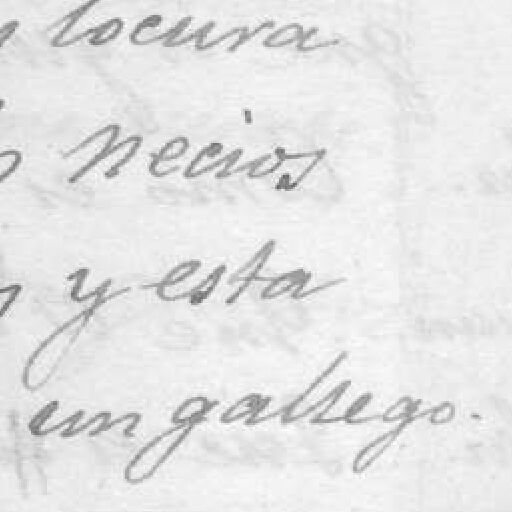 locura
necios
y esta
un gallego.